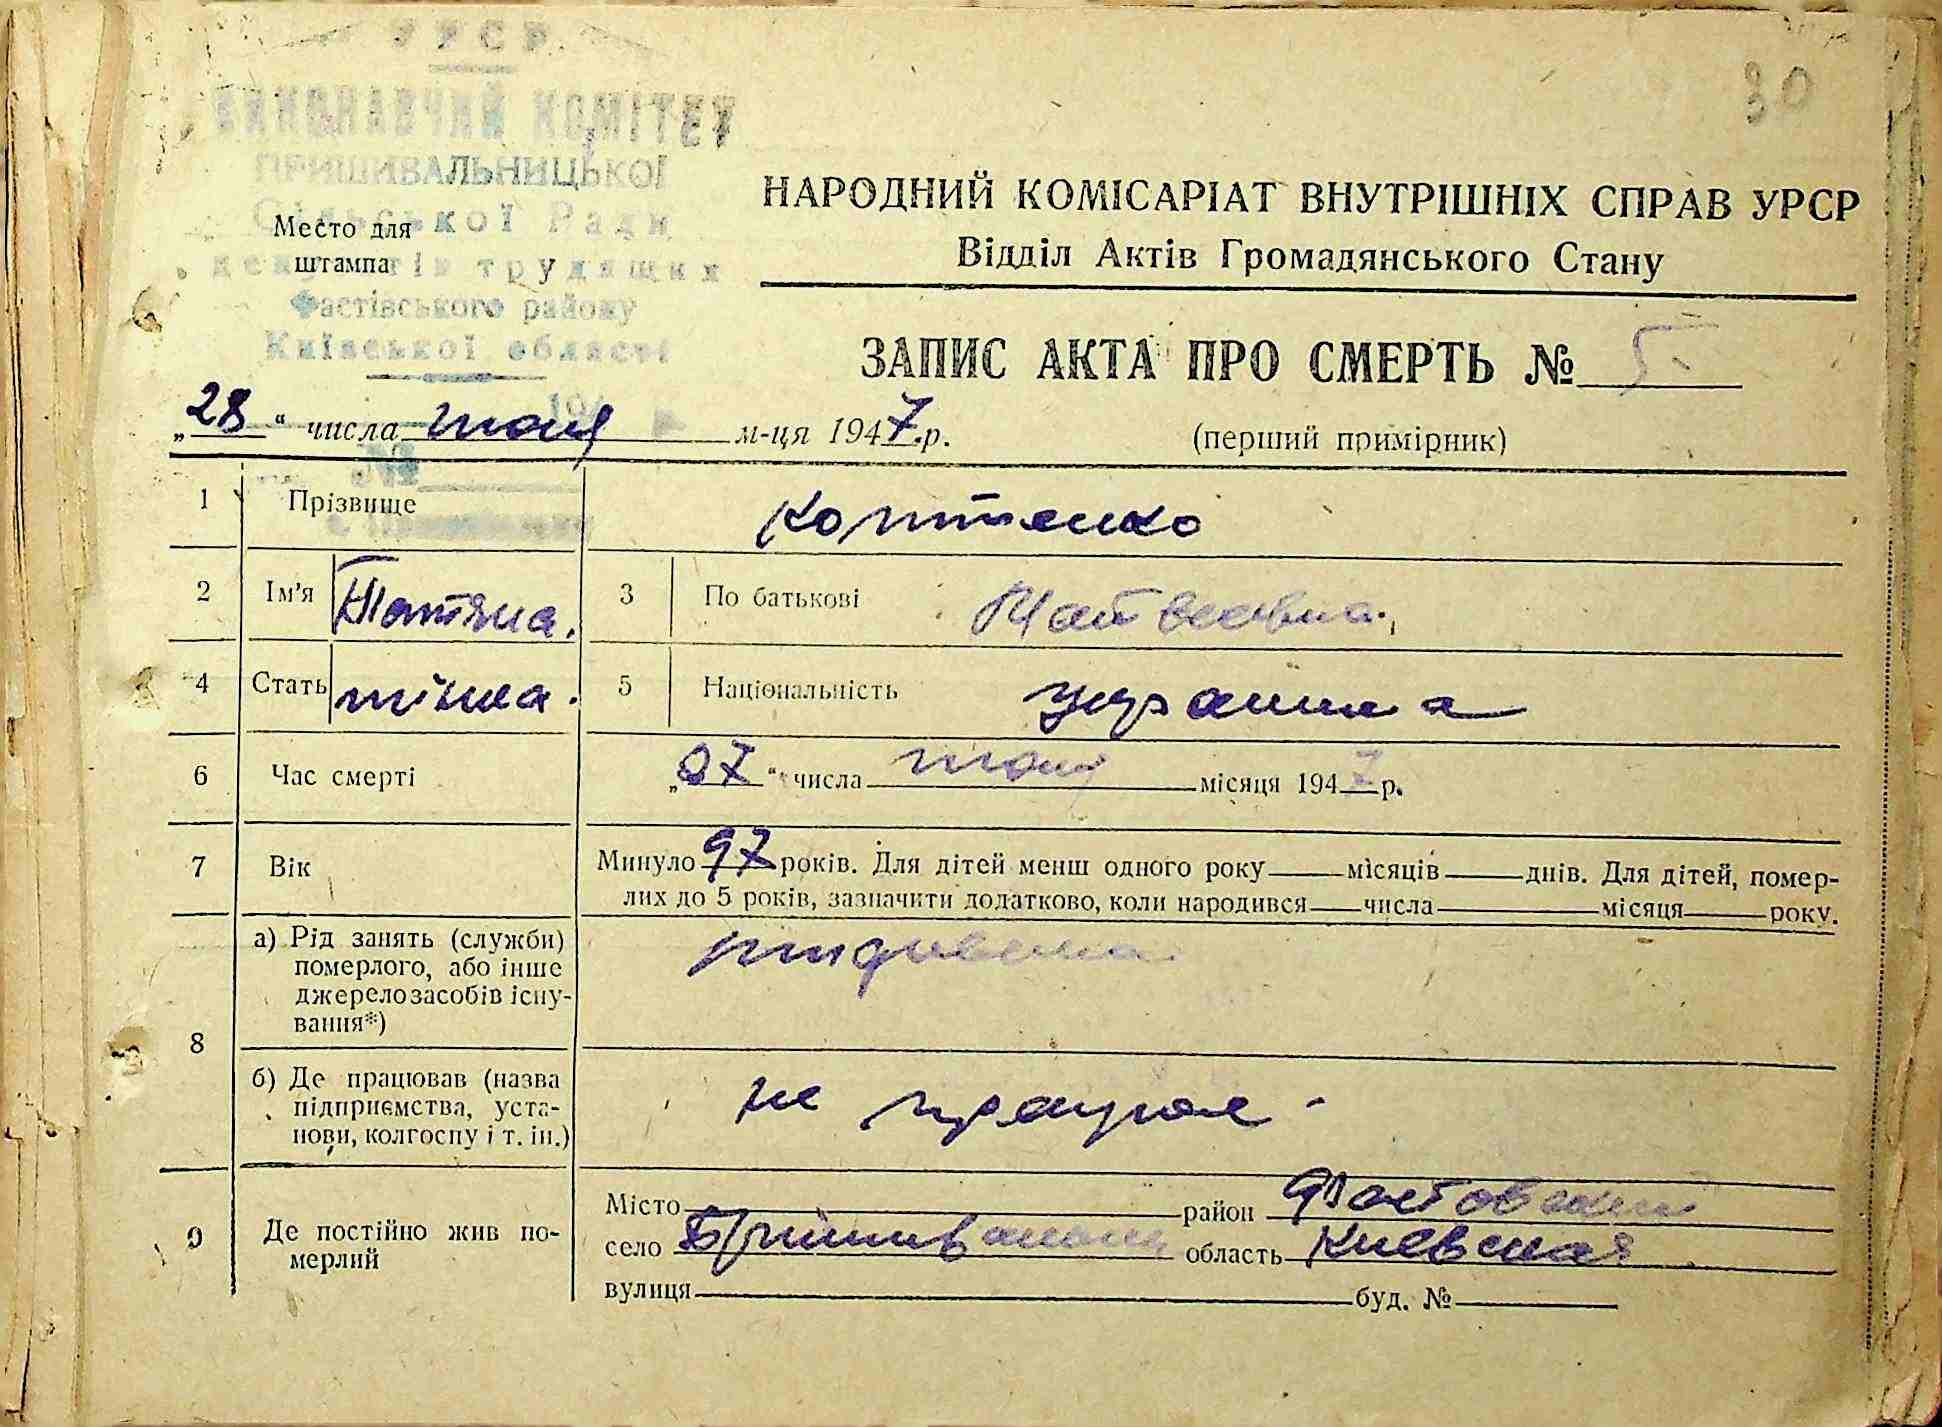 УРСР
ВИКОНАВЧИЙ КОМІТЕТ
ПРИШИВАЛЬНИЦЬКОЇ
Сільської Ради
депутатів трудящих
Фастівського району
Київської області
Место для
штампа
30
НАРОДНИЙ КОМІСАРІАТ ВНУТРІШНІХ СПРАВ УРСР
Відділ Актів Громадянського Стану
ЗАПИС АКТА ПРО СМЕРТЬ № 5
„28“ числа м-ця 1947 р.
(перший примірник)
№
1 Прізвище
2 Ім'я Татяна. 3 По батькові Матвеевна.
4 Стать 5 Національність
6 Час смерті „27“ числа місяця 1947 р.
7 Вік Минуло 97 років. Для дітей менш одного року місяців днів. Для дітей, помер-
лих до 5 років, зазначити додатково, коли народився числа місяця року.
8 а) Рід занять (служби)
померлого, або інше
джерело засобів існу-
вання*)
б) Де працював (назва
підприємства, уста-
нови, колгоспу і т. ін.) не працює
9 Де постійно жив по-
мерлий
Місто район Фастовский
село область Киевская
вулиця буд. №